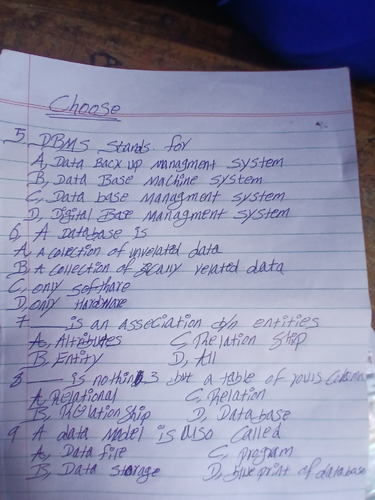 Choose
5 DBMS stands for
A, Data Back up managment system
B, Data Base machine system
C, Data base managment system
D, Digital Base managment system
6, A Database is
A, A colection of unrelated data
B, A collection of related data
C, only software
D, only Hardware
7 ___ is an asseciation b/n entities
A, Attributes C, Relation Ship
B, Entity D, All
8 ___ is nothing but a table of rows
A, Relational C, Relation
B, Relation Ship D, Database
9 A data model is also called
A, Data file C, program
B, Data storage D, blue print of database